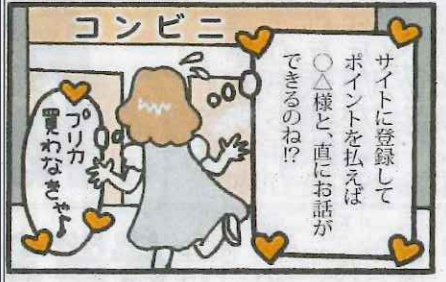 コンビニ
サイトに登録して
ポイントを払えば
〇△様と、直にお話が
できるのね!?
プリカ
買わなきゃ〜